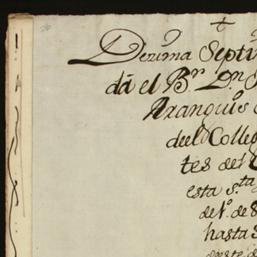 Dezima Septi
dã el Br. Dn.
Aranguis
deel Colleg
tes del C
esta S.ta
de 1o. de
hasta